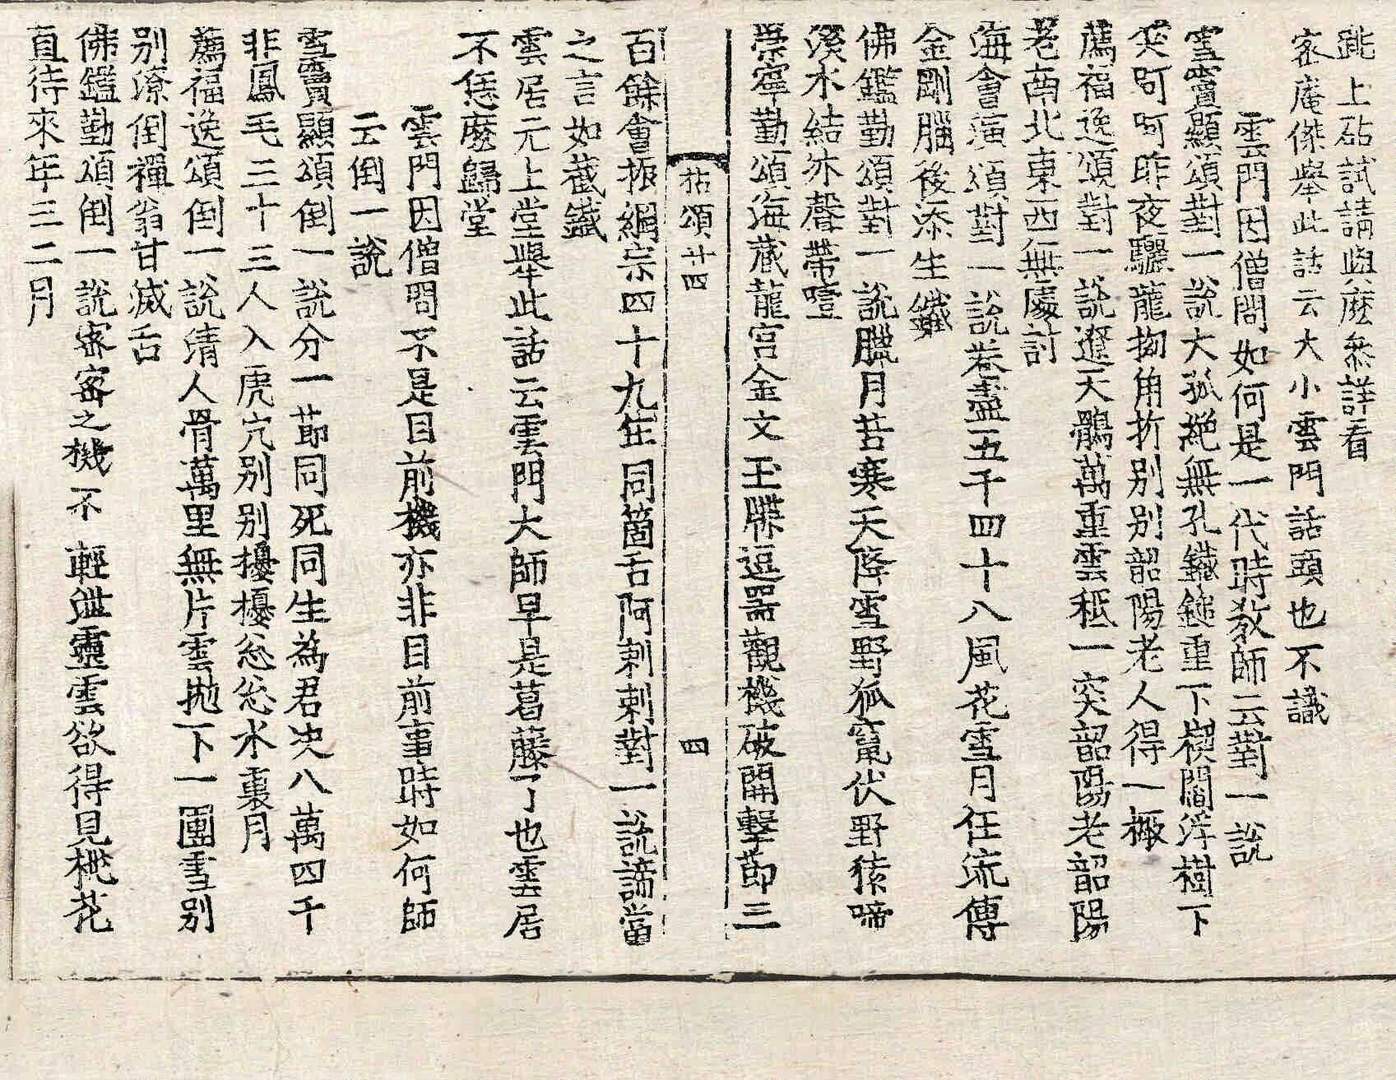 跳上砧試請與麽叅詳看
密庵傑擧此話云大小雲門話頭也不識
雲門因僧問如何是一代時教師云對一說
雪竇顯頌對一說大孤絶無孔鐵鎚重下楔閻浮樹下
笑呵呵昨夜驪龍拗角折别别韶陽老人得一橛
薦福逸頌對一說遼天鶻萬重雲秪一突韶陽老韶陽
老南北東西無處討
海會演頌對一說卷盡五千四十八風花雪月任流傳
金剛腦後添生鐵
佛鑑勤頌對一說臘月苦寒天降雪野狐窠伏野猿啼
溪水結氷聲帶噎
崇寧勤頌海藏龍宫金文玉牒逗器觀機破開擊節三
拈頌廿四 四
百餘會振綱宗四十九年同箇舌阿剌剌對一說諦當
之言如截鐵
雲居元上堂擧此話云雲門大師早是葛藤了也雲居
不恁麽歸堂
雲門因僧問不是目前機亦非目前事時如何師
云倒一說
雪竇顯頌倒一說分一莭同死同生為君决八萬四千
非鳳毛三十三人入虎穴别别擾擾忩忩水裏月
薦福逸頌倒一說清人骨萬里無片雲抛下一團雪别
别潦倒禪翁甘滅舌
佛鑑勤頌倒一說密密之機不輕泄靈雲欲得見桃花
直待來年三二月